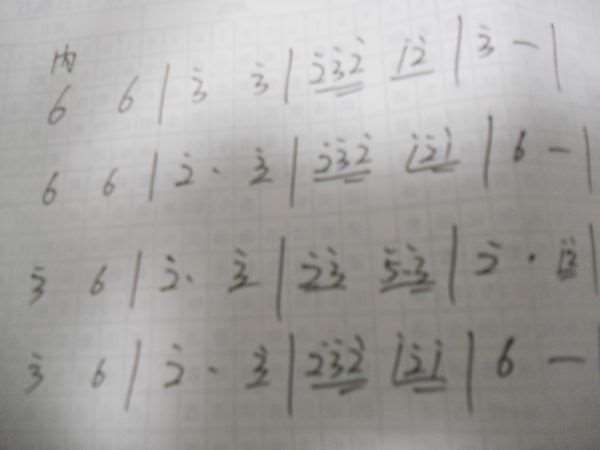 内
6 6 | 3̇ 3̇ | 2̇3̇2̇ 1̇2̇ | 3̇ - |
6 6 | 2̇· 3̇ | 2̇3̇2̇ 1̇2̇1̇ | 6 - |
3̇ 6 | 2̇· 3̇ | 2̇3̇ 5̇·3̇ | 2̇ · 1̇3̇ |
3̇ 6 | 2̇· 3̇ | 2̇3̇2̇ 1̇2̇1̇ | 6 —